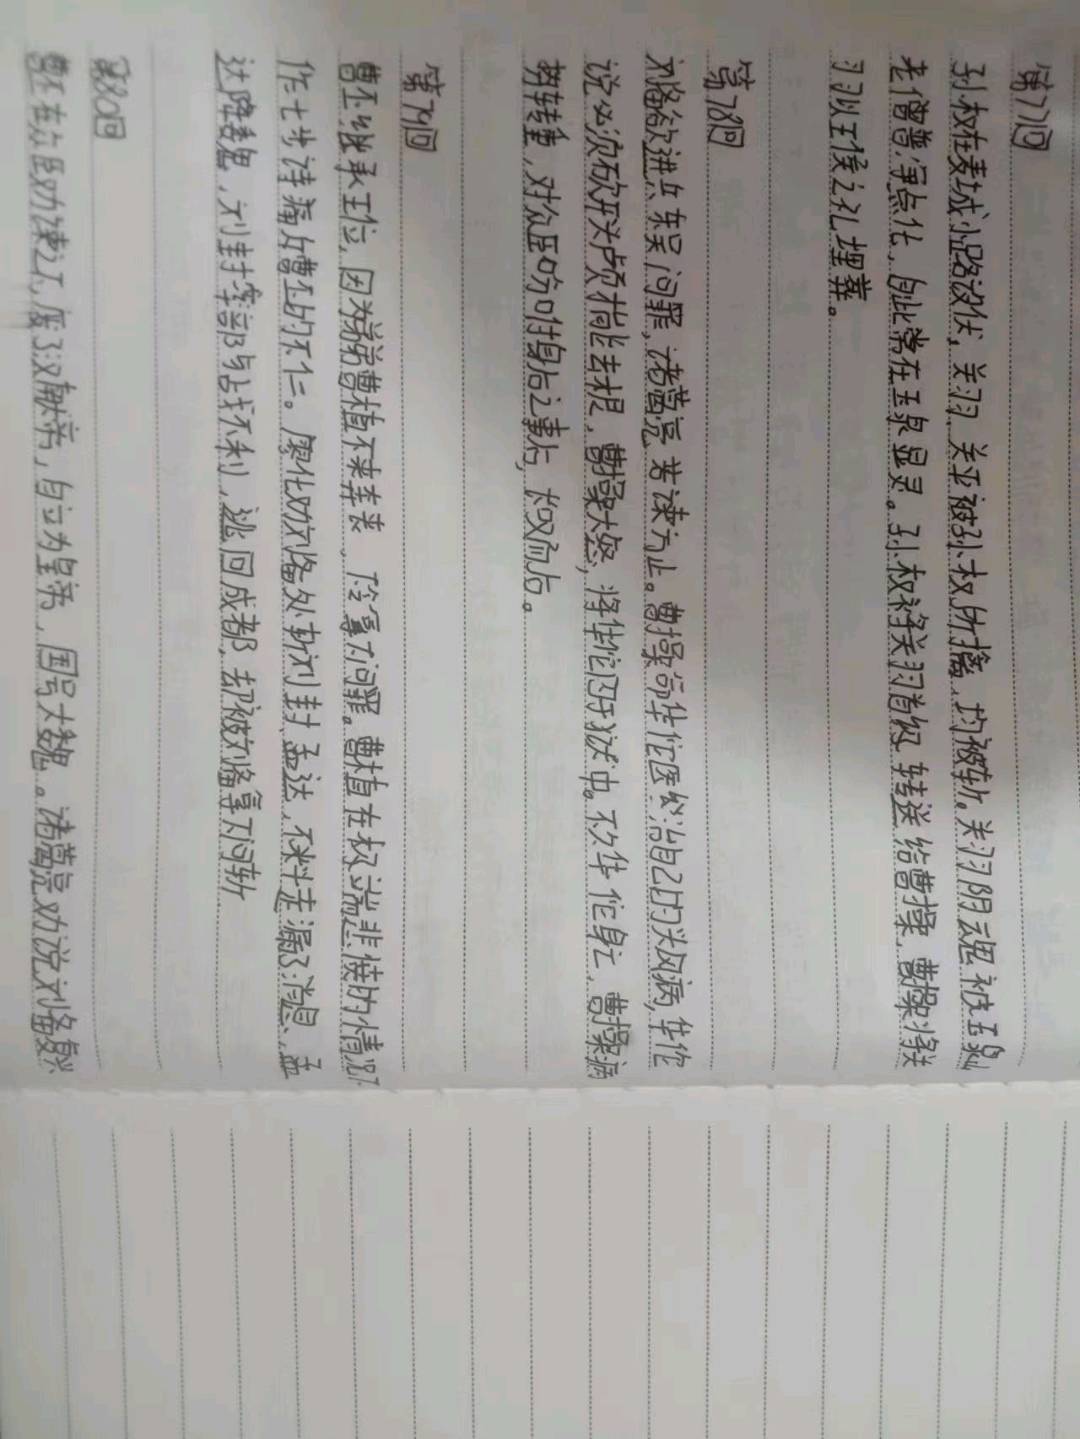 第77回
孙权在麦城小路没伏,关羽、关平被孙权所擒,均被斩。关羽阴魂被玉泉山
老僧普净点化,自此常在玉泉显灵。孙权将关羽首级转送给曹操,曹操将关
羽以王侯之礼埋葬。
第78回
刘备欲进兵东吴问罪,诸葛亮苦谏方止。曹操命华佗医治自己的头风病,华佗
说必须砍开头颅方能去根,曹操大怒,将华佗囚于狱中。不久华佗身亡,曹操病
势转重,对众臣吩咐身后之事后,长叹而亡。
第79回
曹丕继承王位,因为弟弟曹植不来奔丧,令寡问罪。曹植在极端悲愤的情况下
作七步诗痛斥曹丕的不仁。廖化劝刘备处斩刘封、孟达,不料走漏了消息,孟
达降曹魏,刘封率部与战不利,逃回成都,却被刘备拿下问斩
第80回
曹丕在众臣劝谏之下,废了汉献帝,自立为皇帝,国号大魏。诸葛亮劝说刘备